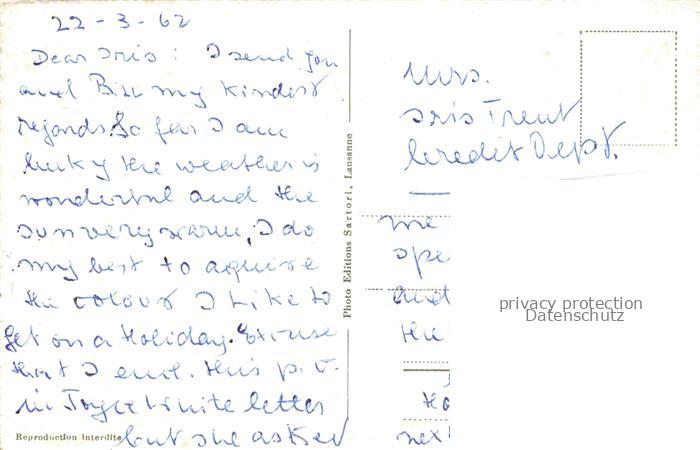 22-3-62
Dear Iris: I send you
and Bill my kindest
regards. So far I am
lucky the weather is
wonderful and the
sun very warm, I do
my best to aquire
the colour I like to
get on a Holiday. Excuse
that I encl. this p.c.
in Joyce White letter
but she asked
Reproduction interdite
Photo Editions Sartori, Lausanne
Mrs.
Iris Trent
Credit Dept.
me
spe
and
the
Ho
next
privacy protection
Datenschutz